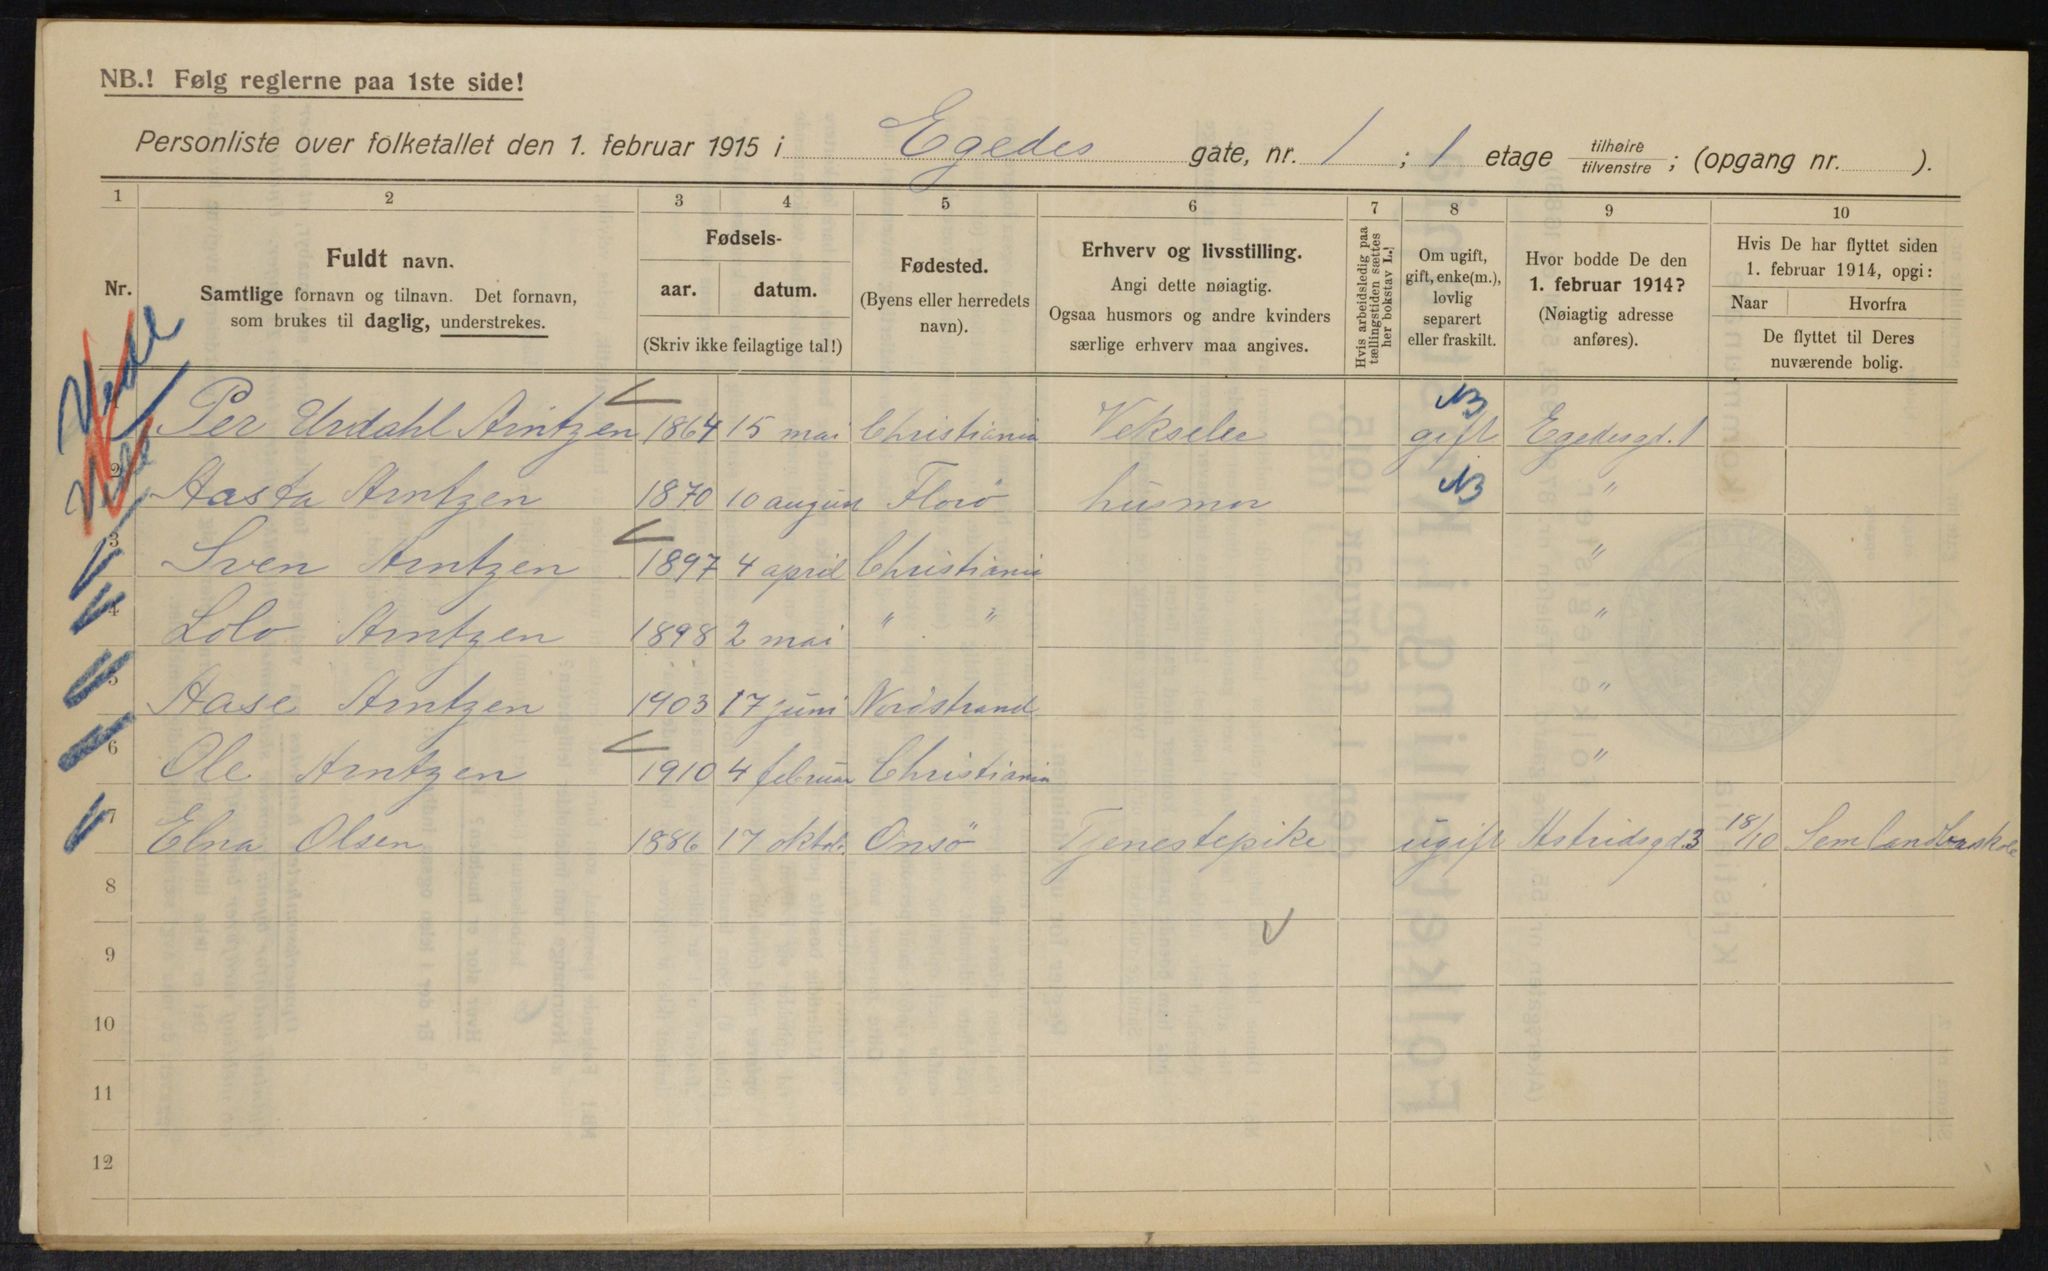 NB.! Følg reglerne paa 1ste side!
Personliste over folketallet den 1. februar 1915 i Egedes gate, nr. 1 ; 1 etage tilhøire tilvenstre ; (opgang nr. ).
1 2 3 4 5 6 7 8 9 10
Nr.
Fuldt navn.
Samtlige fornavn og tilnavn. Det fornavn,
som brukes til daglig, understrekes.
Fødsels-
aar. datum.
(Skriv ikke feilagtige tal!)
Fødested.
(Byens eller herredets
navn).
Erhverv og livsstilling.
Angi dette nøiagtig.
Ogsaa husmors og andre kvinders
særlige erhverv maa angives.
Hvis arbeidsledig paa
tællingstiden sættes
her bokstav L.!
Om ugift,
gift, enke(m.),
lovlig
separert
eller fraskilt.
Hvor bodde De den
1. februar 1914?
(Nøiagtig adresse
anføres).
Hvis De har flyttet siden
1. februar 1914, opgi:
Naar Hvorfra
De flyttet til Deres
nuværende bolig.
Per Urdahl Arntzen 1864 15 mai Christiania gift Egedesgd. 1
2 Aasta Arntzen 1870 10 august Florö husmor "
3 Sven Arntzen 1897 4 april Christiania "
4 Lolo Arntzen 1898 2 mai " " "
5 Aase Arntzen 1903 17 juni Nordstrand "
6 Ole Arntzen 1910 4 februar Christiania "
7 Elna Olsen 1886 17 oktob. Onsö Tjenestepike ugift Astridsgd. 3 18/10
8
9
10
11
12